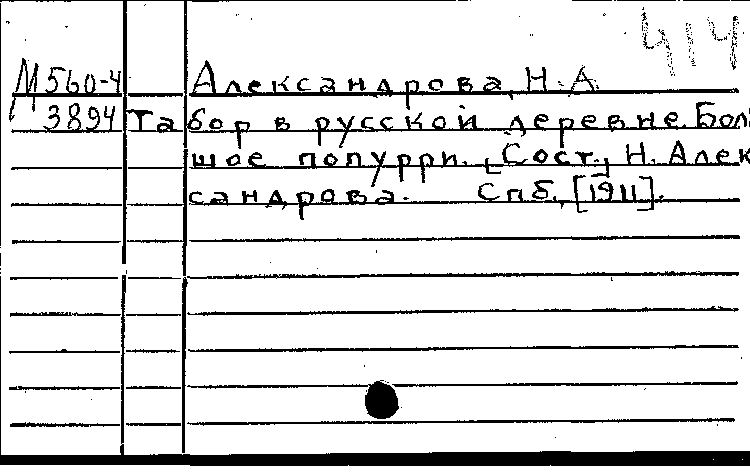 414
М560-4 Александрова, Н. А.
3894 Табор в русской деревне. Боль
шое попурри. [Сост.] Н. Алек
сандрова. Спб., [1911].